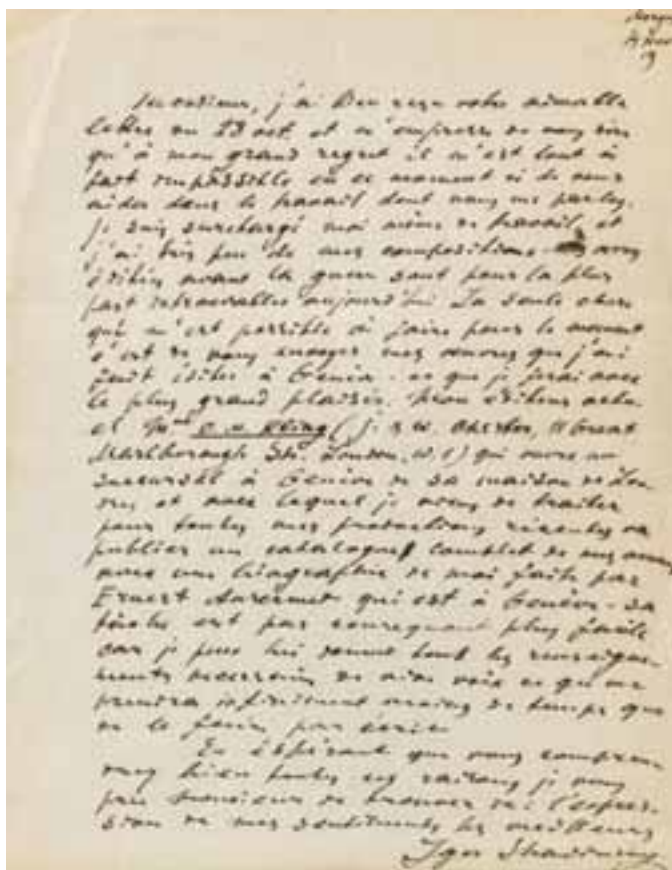 Morges
4 Nov
19
Monsieur, j'ai bien reçu votre aimable
lettre du 28 oct. et m'empresse de vous dire
qu'à mon grand regret il m'est tout à
fait impossible en ce moment ci de vous
aider dans le travail dont vous me parlez.
Je suis surchargé moi même de travail et
j'ai très peu de mes compositions
éditées avant la guerre sont pour la plu
part introuvables aujourd'hui. La seule chose
qui m'est possible à faire pour le moment
c'est de vous envoyer mes œuvres que j'ai
fait éditer à Genève - ce que je ferai avec
le plus grand plaisir. Mon éditeur actu-
el Mr O. M. Kling (J. & W. Chester, 11 Great
Marlborough Str. London, W. 1) qui ouvre un
succursale à Genève de sa maison de Lon-
dres et avec lequel je viens de traiter
pour toutes mes productions récentes va
publier un catalogue complet de mes œuvres
avec une biographie de moi faite par
Ernest Ansermet qui est à Genève - sa
tâche est par conséquent plus facile
car je peux lui donner tout les renseigne-
ments nécessaires de vive voix ce qui me
prendra infiniment moins de temps que
de le faire par écrit.
En espérant que vous compren-
drez bien toutes ces raisons je vous
prie Monsieur de trouver ici l'expres-
sion de mes sentiments les meilleurs
Igor Strawinsky